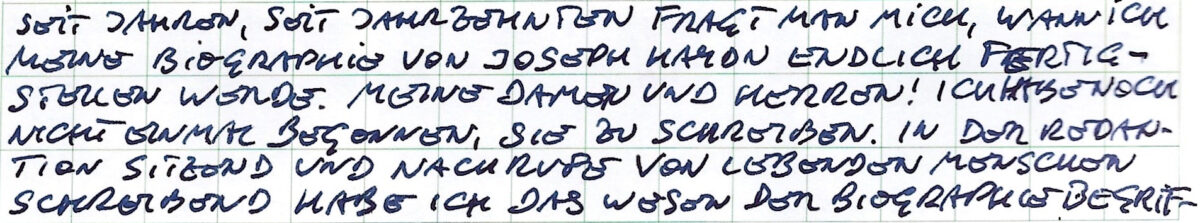 SEIT JAHREN, SEIT JAHRZEHNTEN FRAGT MAN MICH, WANN ICH
MEINE BIOGRAPHIE VON JOSEPH HAYDN ENDLICH FERTIG-
STELLEN WERDE. MEINE DAMEN UND HERREN! ICH HABE NOCH
NICHT EINMAL BEGONNEN, SIE ZU SCHREIBEN. IN DER REDAK-
TION SITZEND UND NACHRUFE VON LEBENDEN MENSCHEN
SCHREIBEND HABE ICH DAS WESEN DER BIOGRAPHIE BEGRIF-